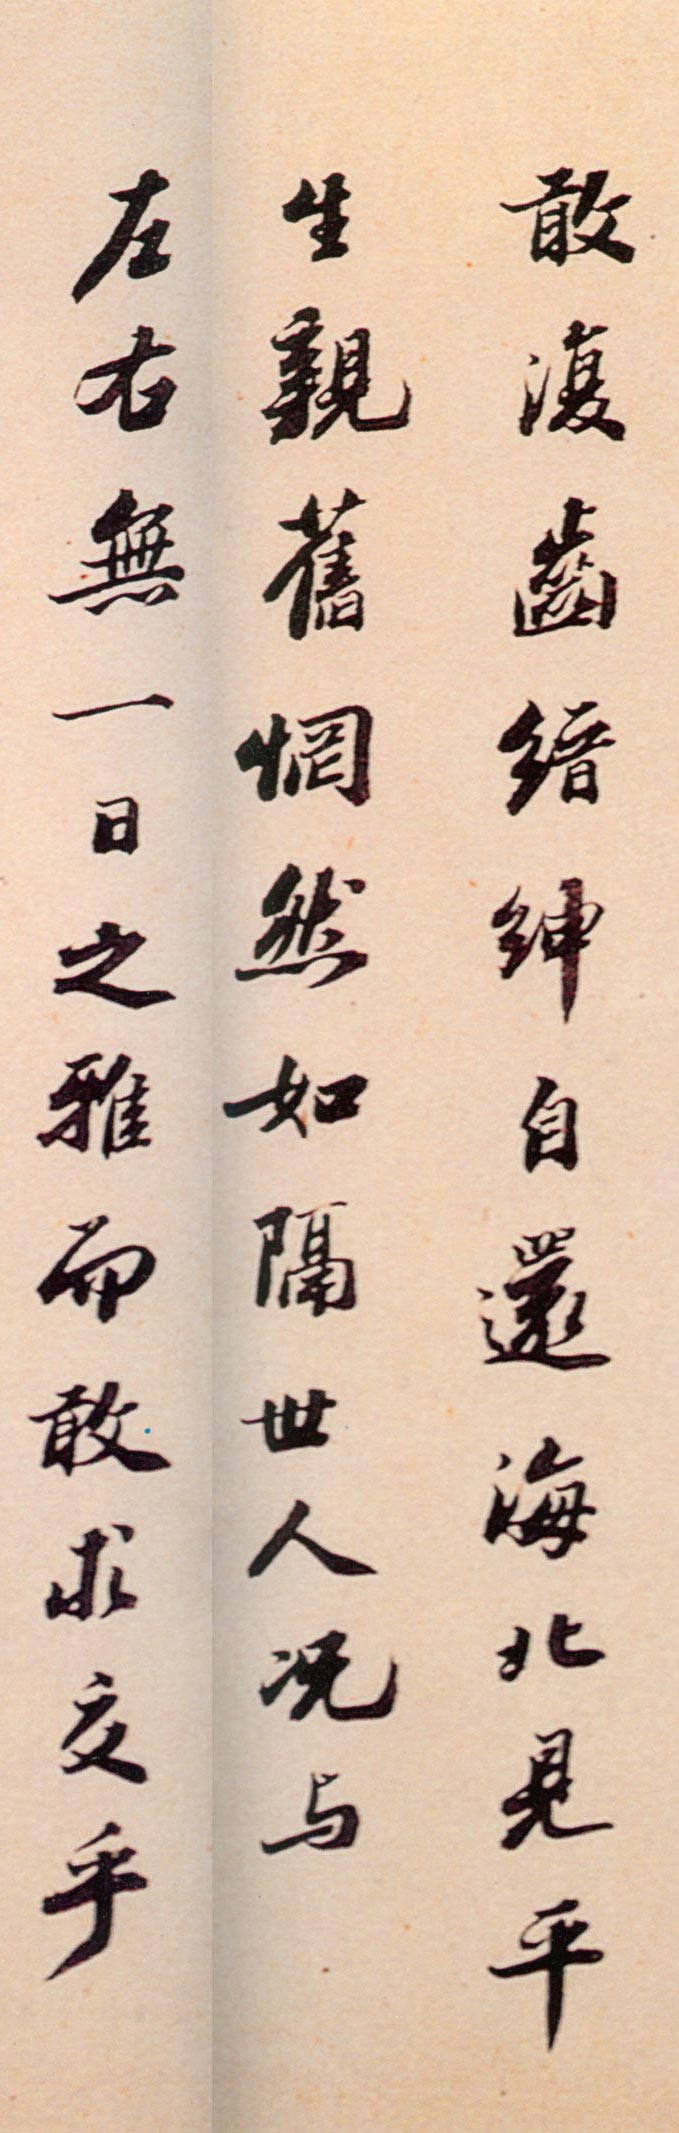 敢復齒縉紳自還海北見平
生親舊惘然如隔世人況与
左右無一日之雅而敢求交乎